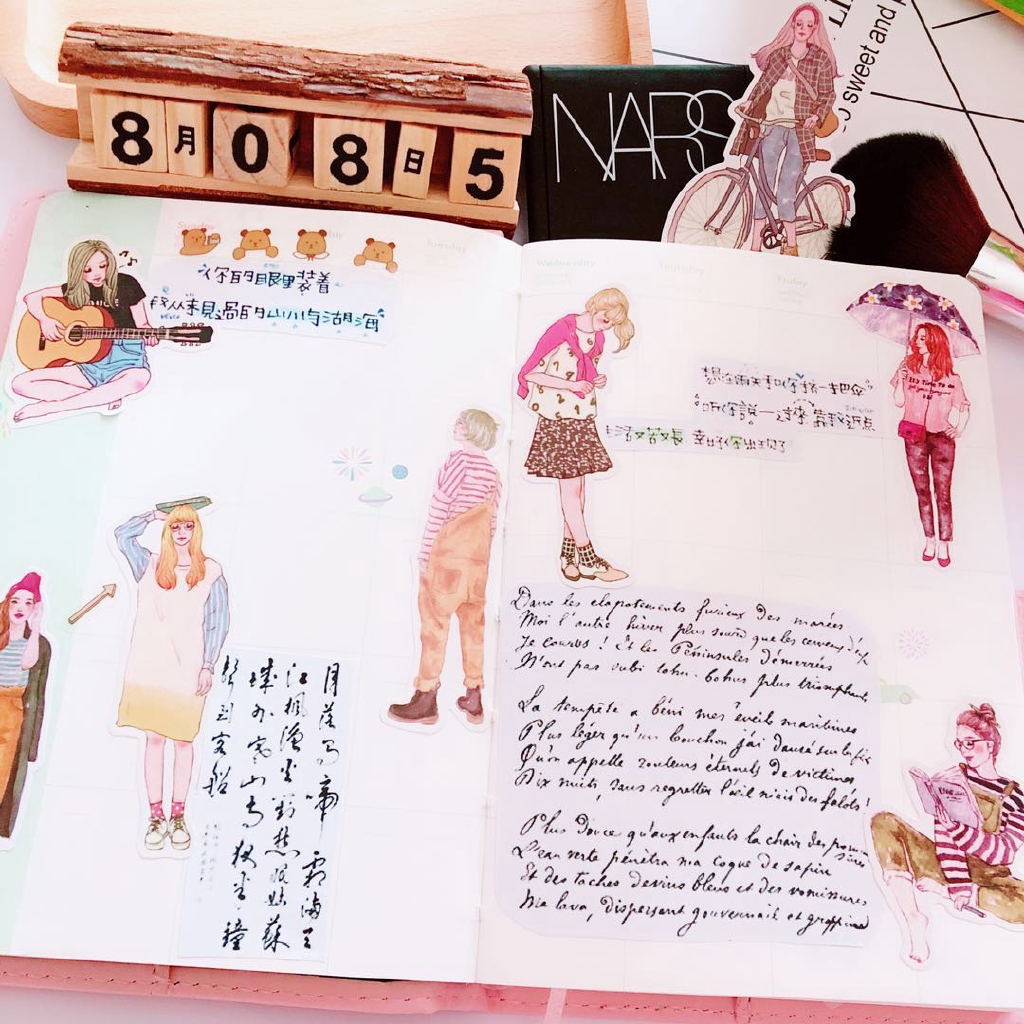 8月08日5
NARS
SO sweet and
LI
Sunday
Sunday
Wednesday
Thursday
Friday
你的眼里装着
我从未見過的山川与湖海
想在雨天和你孩一把伞
听你説一过来 靠我近点
生活又苦又長 幸好你出現了
IT'S TIME TO
Dans les clapotements furieux des marées
Moi l'autre hiver plus sourd que les cerveaux d'enf
Je courus ! Et les Péninsules démarrées
N'ont pas subi tohu-bohus plus triomphants
La tempête a béni mes éveils maritimes
Plus léger qu'un bouchon j'ai dansé sur les flo
Qu'on appelle rouleurs éternels de victimes
Dix nuits, sans regretter l'œil niais des falots !
Plus douce qu'aux enfants la chair des pommes sûres
L'eau verte pénétra ma coque de sapin
Et des taches de vins bleus et des vomissures
Me lava, dispersant gouvernail et grappin
月落烏啼 霜滿天
江楓漁火對愁眠姑蘇
城外寒山寺夜半鐘
聲到客船